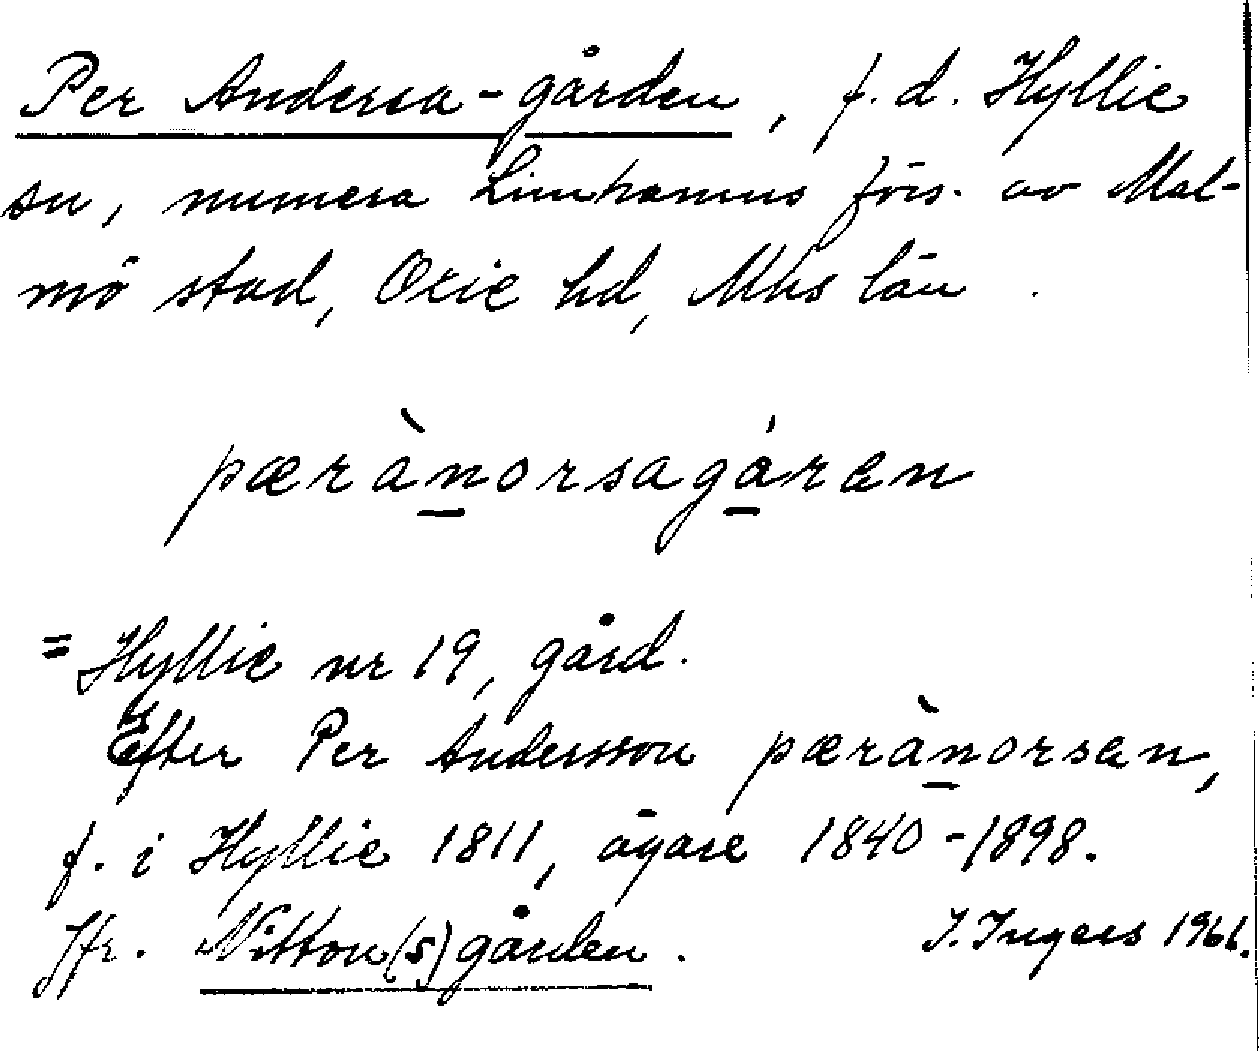 Per Andersa-gården, f.d. Hyllie
sn, numera Limhamns förs. av Mal-
mö stad, Oxie hd, Mhs län.
pæràn̲orsagá̲ren
= Hyllie nr 19, gård.
Efter Per Andersson pæràn̲orsen,
f. i Hyllie 1811, ägare 1840-1898.
Jfr. Nitton(s)gården.
I. Ingers 1966.